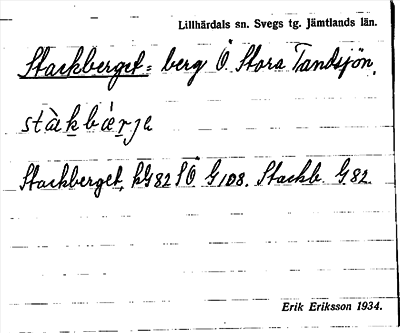 Lillhärdals sn. Svegs tg. Jämtlands län.
Stackberget = berg Ö. Stora Tandsjön.
stàkbærja
Stackberget, kG82 SO G108. Stackb. G.82.
Erik Eriksson 1934.